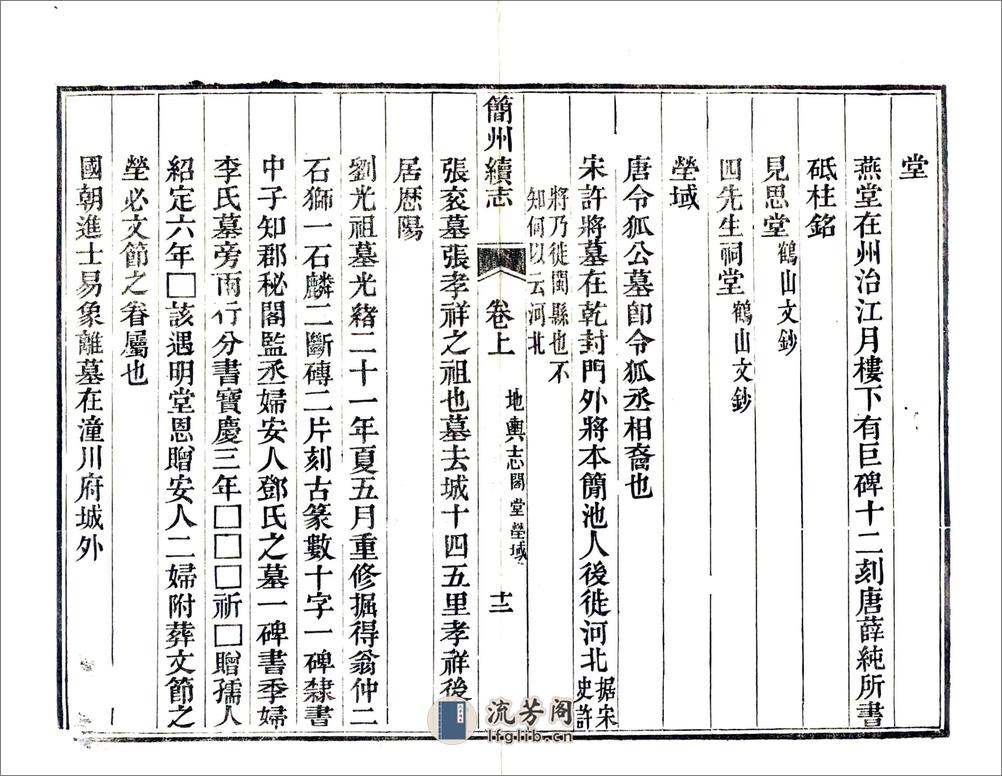 堂
燕堂在州治江月樓下有巨碑十二刻唐薛純所書
砥柱銘
見思堂鶴山文鈔
四先生祠堂鶴山文鈔
塋域
唐令狐公墓卽令狐丞相裔也
宋許將墓在乾封門外將本簡池人後徙河北据宋史許
將乃徙閩縣也不
知何以云河北
張衮墓張孝祥之祖也墓去城十四五里孝祥後
居歷陽
簡州續志
卷上
地輿志閣堂塋域
十二
劉光祖墓光緒二十一年夏五月重修掘得翁仲二
石獅一石麟二斷磚二片刻古篆數十字一碑隸書
中子知郡秘閣監丞婦安人鄧氏之墓一碑書季婦
李氏墓旁兩行分書寶慶三年□□□祈□贈孺人
紹定六年□該遇明堂恩贈安人二婦附葬文節之
塋必文節之眷屬也
國朝進士易象離墓在潼川府城外
流芳閣
lfglib.cn